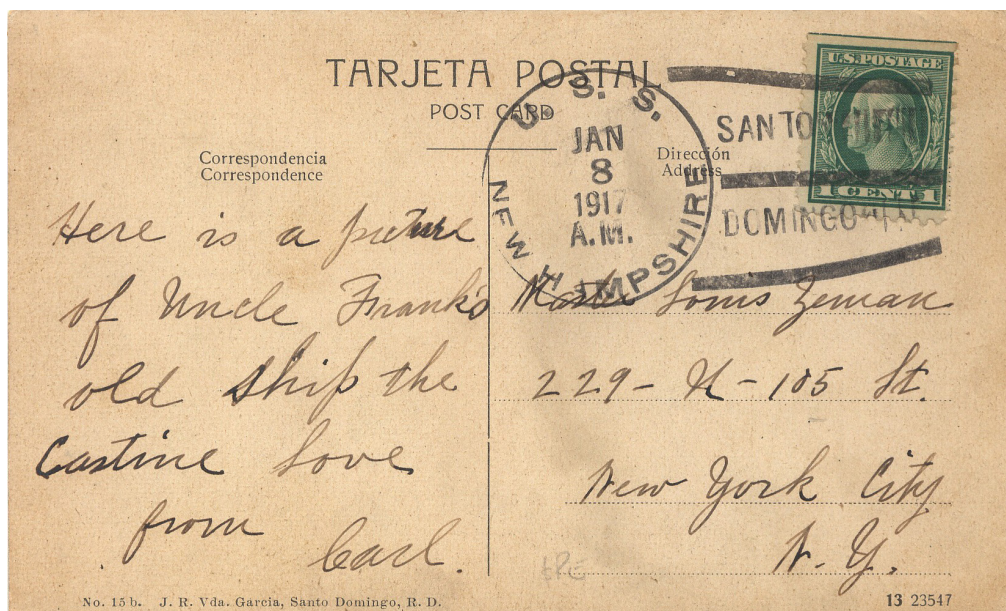 TARJETA POSTAL
POST CARD
Correspondencia
Correspondence
Dirección
Address
U.S.POSTAGE
1 CENT 1
U. S. S.
NEW HAMPSHIRE
JAN
8
1917
A.M.
SANTO
DOMINGO
Here is a picture
of Uncle Frank's
old ship the
Castine Love
from
Carl.
Master Louis Zeman
229 - W - 105 St.
New York City
N. Y.
No. 15 b. J. R. Vda. Garcia, Santo Domingo, R. D.
13 23547